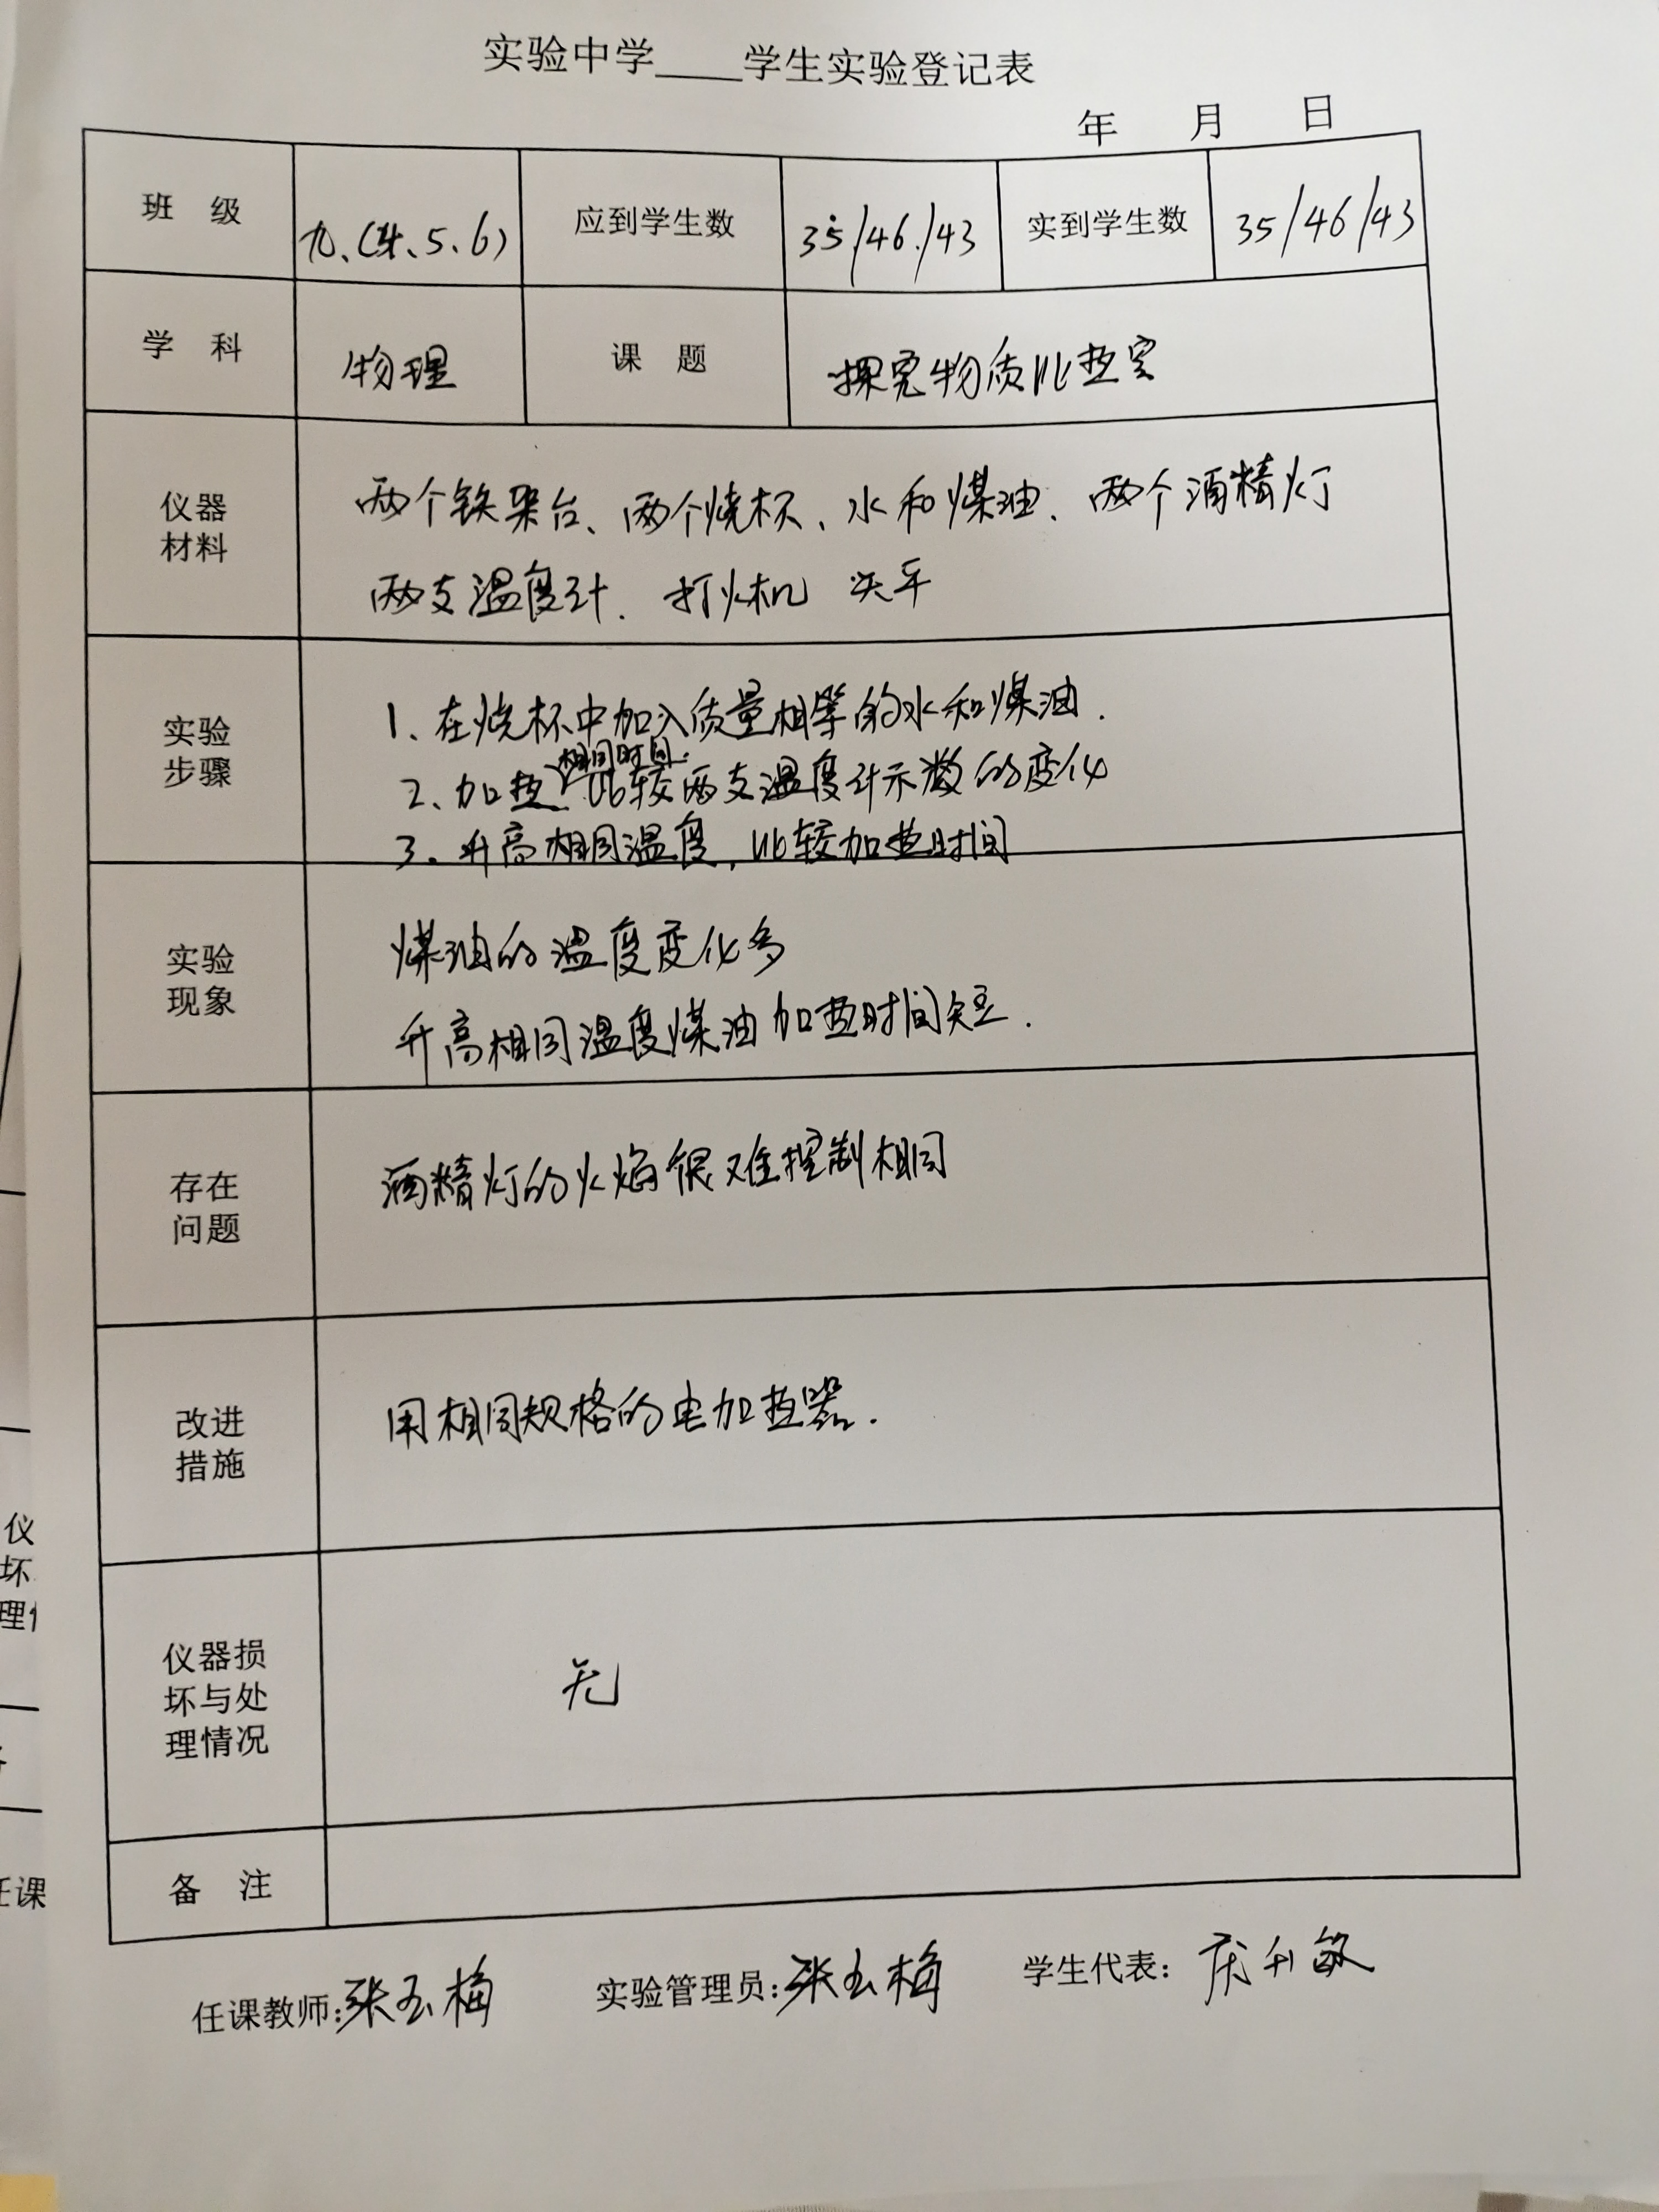 实验中学____学生实验登记表
年 月 日
班 级 九、(4、5、6) 应到学生数 35/46/43 实到学生数 35/46/43
学 科 物理 课 题 探究物质比热容
仪器
材料
两个铁架台、两个烧杯、水和煤油、两个酒精灯
两支温度计. 打火机 天平
实验
步骤
1、在烧杯中加入质量相等的水和煤油.
2、加热相同时间.比较两支温度计示数的变化
3. 升高相同温度,比较加热时间
实验
现象
煤油的温度变化多
升高相同温度煤油加热时间短.
存在
问题
酒精灯的火焰很难控制相同
改进
措施
用相同规格的电加热器.
仪器损
坏与处
理情况
无
备 注
任课教师:张玉梅 实验管理员:张玉梅 学生代表:
仪
坏
理
任课